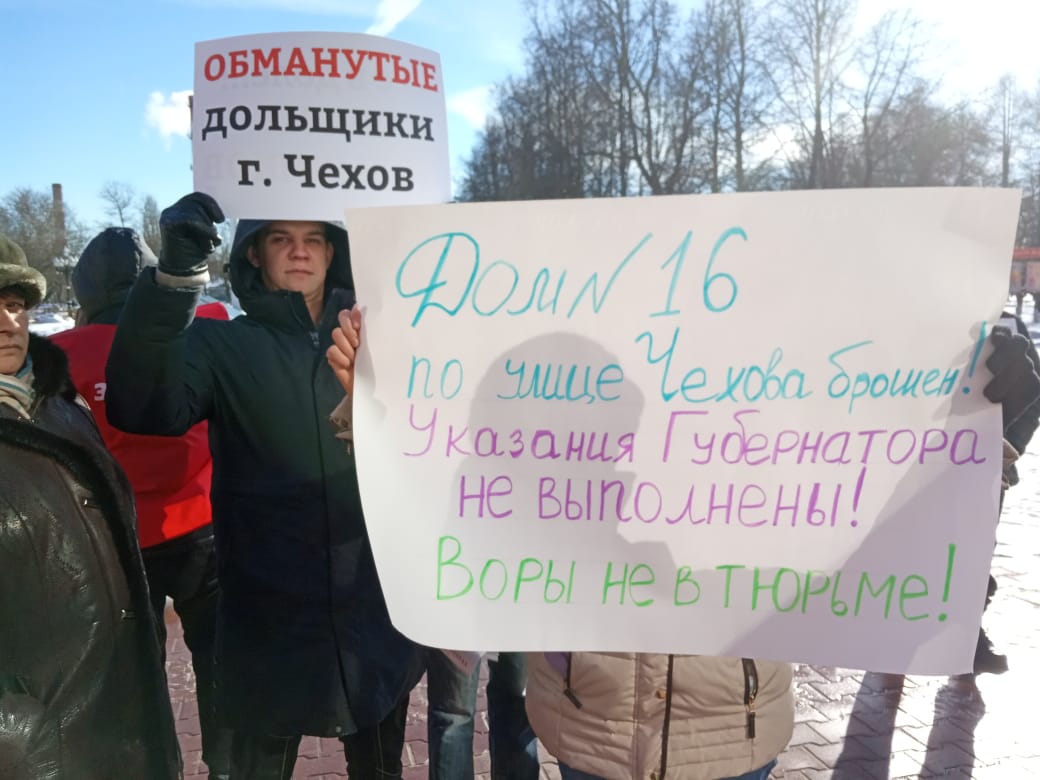 ОБМАНУТЫЕ
дольщики
г. Чехов
Дом N 16
по улице Чехова брошен!
Указания Губернатора
не выполнены!
Воры не в тюрьме!